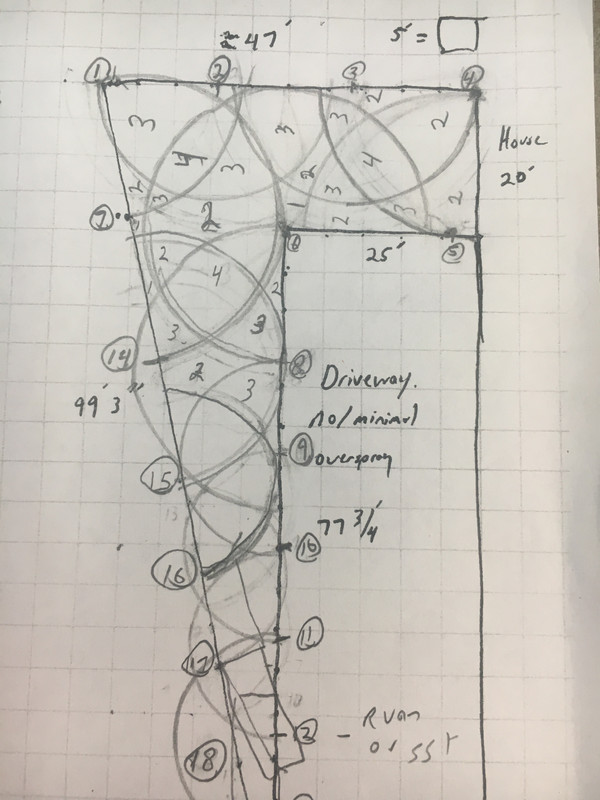 ≈ 47' 5' =
1 2 3 4
3 3 3 2 2
House
20'
4 3 2 4
2 3 2 1 3 2 3 2
7 6 25' 5
2 4 2
1
3 3
14 8
2 3
Driveway.
99' 3"
no/minimal
9 overspray
15
13
77 3/4'
10
16
11
17
10
12 - R van
or SST
18